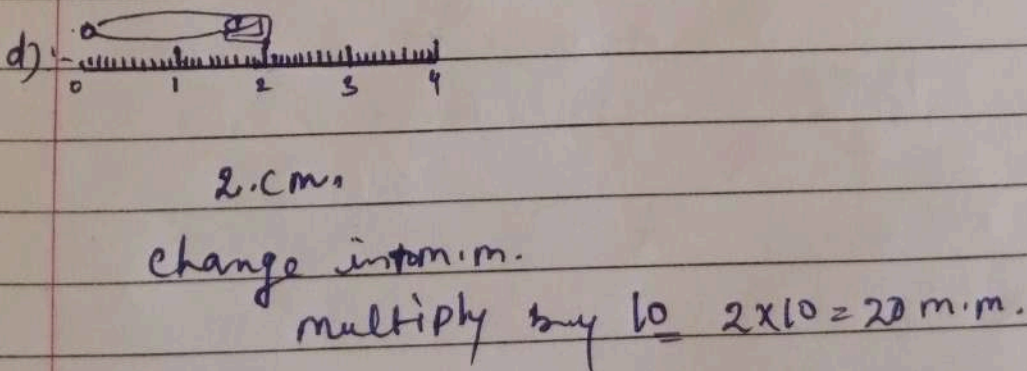 d)
0 1 2 3 4
2.cm.
change into m.m.
multiply by 10 2x10=20 m.m.